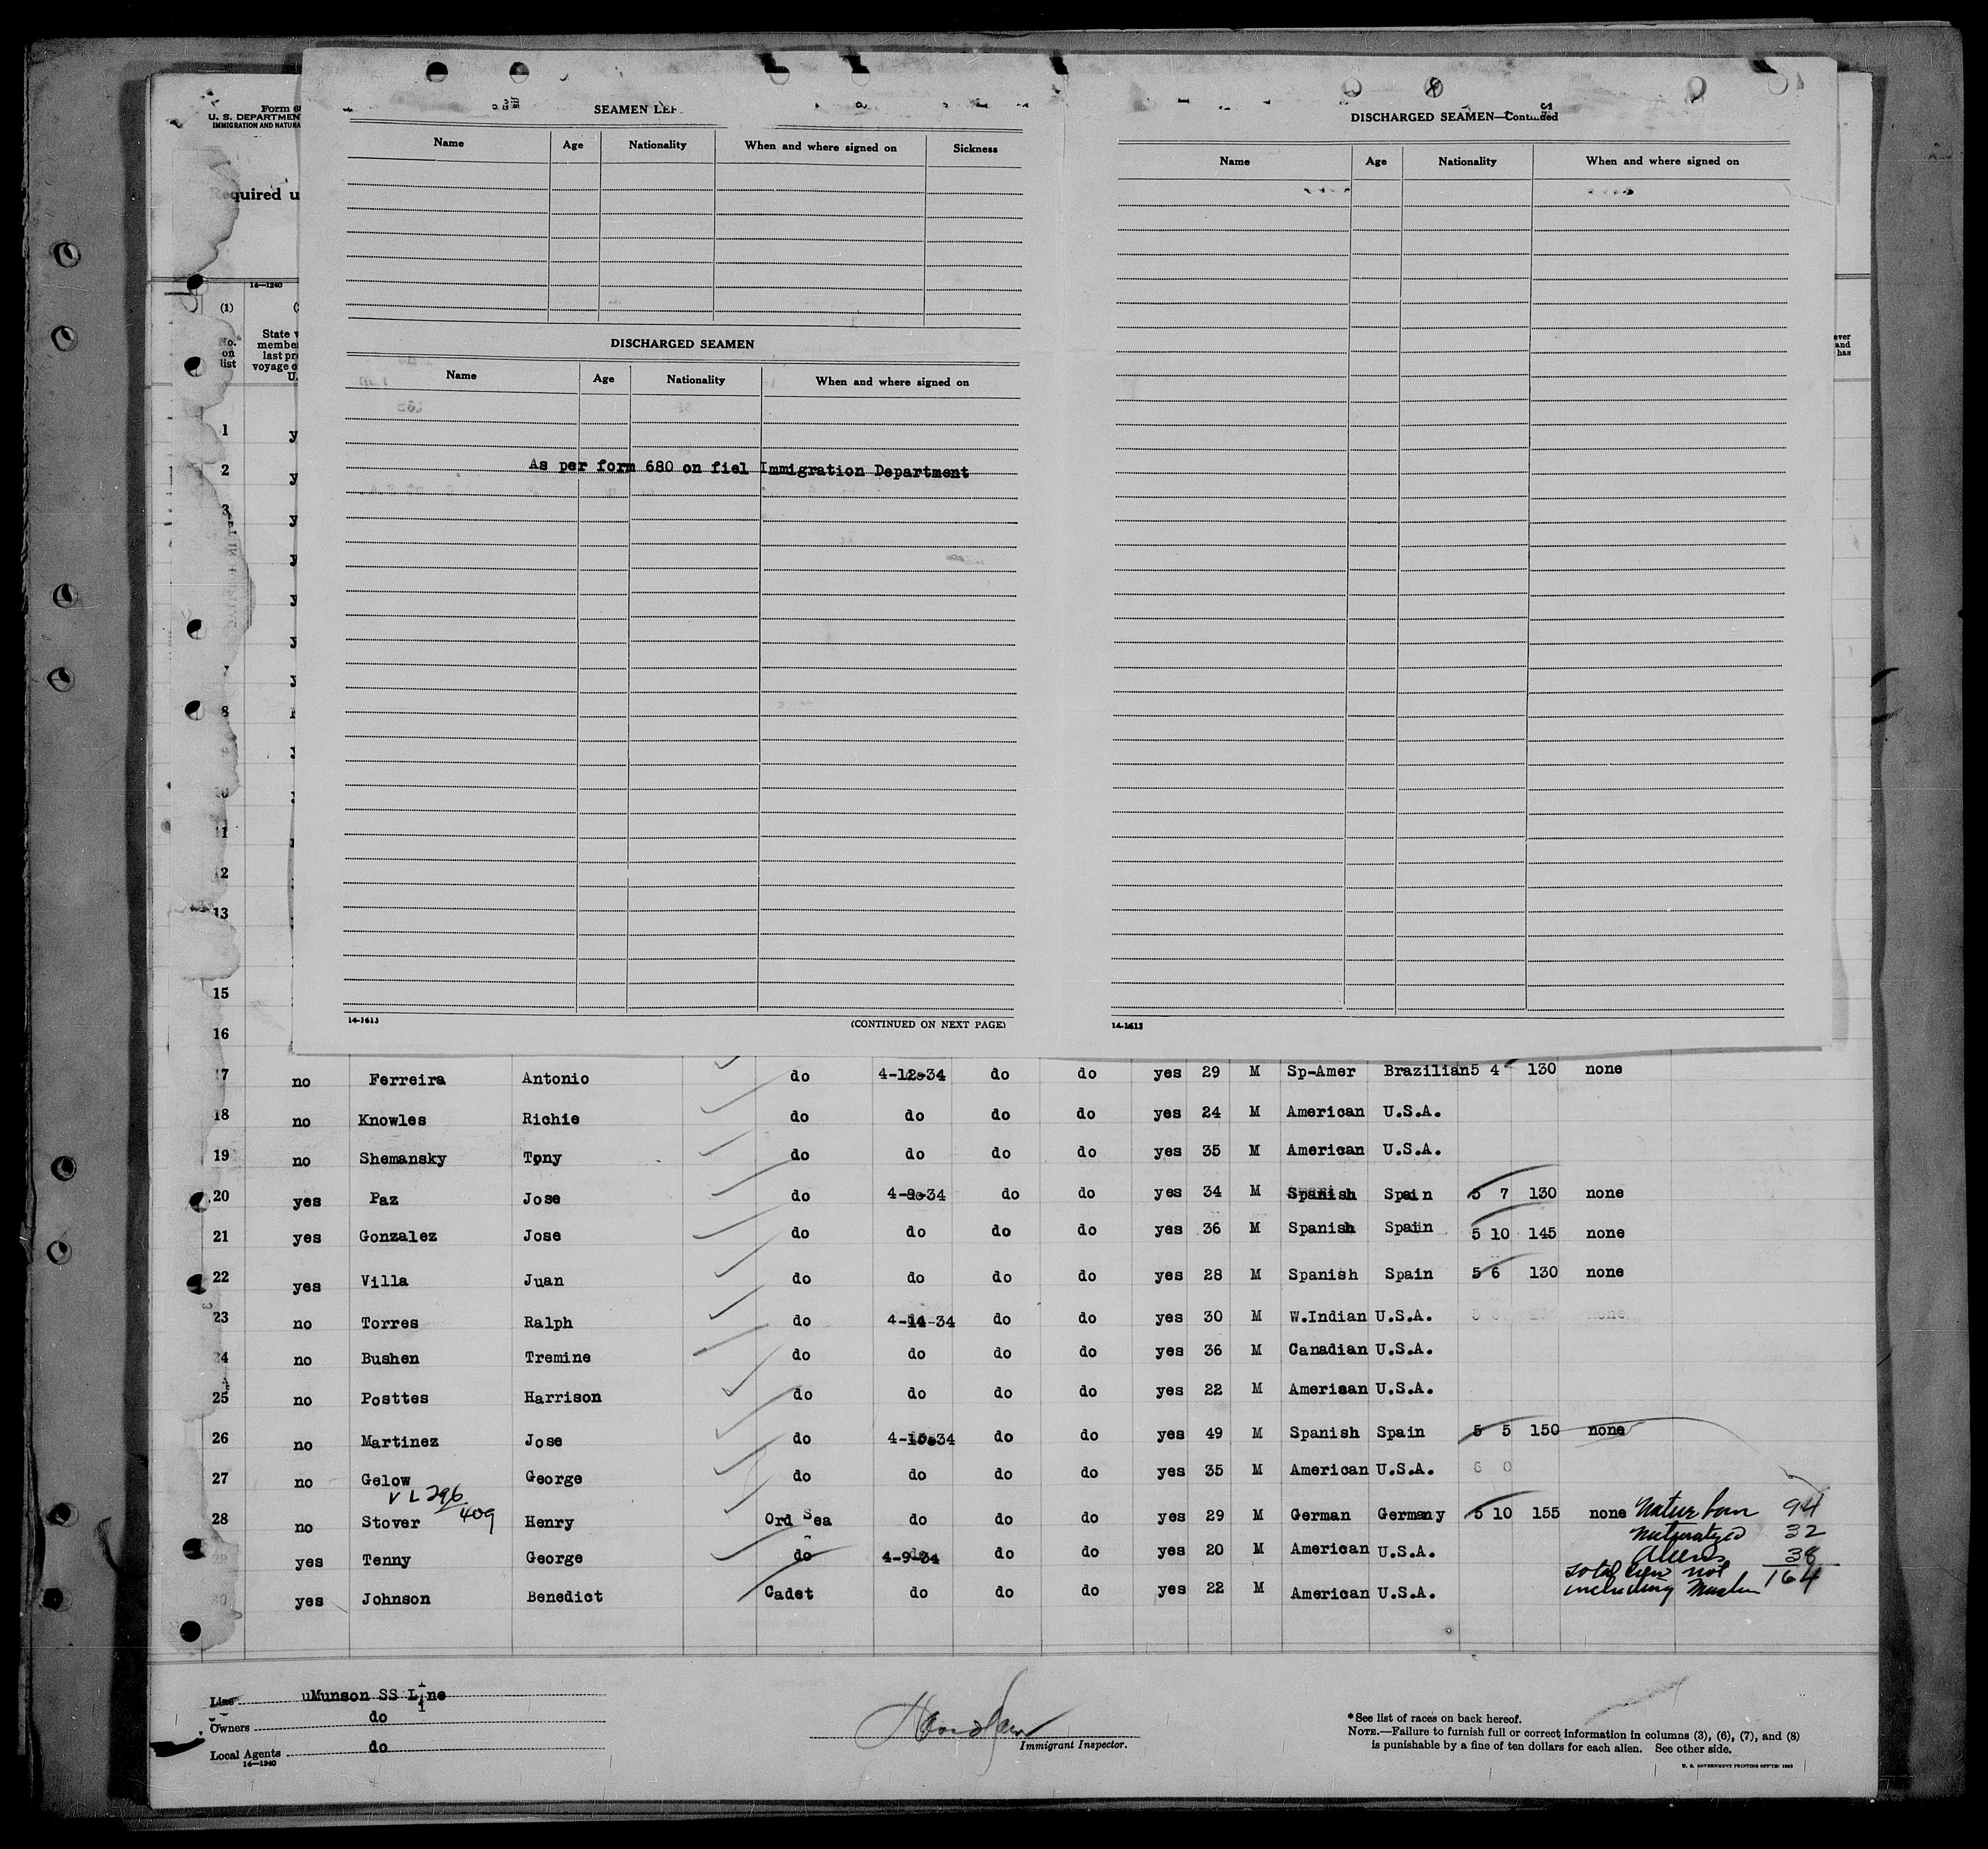 Form 68
U. S. DEPARTMENT
IMMIGRATION AND NATURA
Required u
14—1240
(1)
No. on list
State v
membe
last pre
voyage o
U.
SEAMEN LEF
Name Age Nationality When and where signed on Sickness
DISCHARGED SEAMEN
Name Age Nationality When and where signed on
As per form 680 on fiel Immigration Department
14-1613 (CONTINUED ON NEXT PAGE)
DISCHARGED SEAMEN—Continued
Name Age Nationality When and where signed on
14-1613
ever
and
has
1 y
2 y
3 y
8
11
12
13
15
16
17 no Ferreira Antonio do 4-12-34 do do yes 29 M Sp-Amer Brazilian 5 4 130 none
18 no Knowles Richie do do do do yes 24 M American U.S.A.
19 no Shemansky Tony do do do do yes 35 M American U.S.A.
20 yes Paz Jose do 4-9-34 do do yes 34 M Spanish Spain 5 7 130 none
21 yes Gonzalez Jose do do do do yes 36 M Spanish Spain 5 10 145 none
22 yes Villa Juan do do do do yes 28 M Spanish Spain 5 6 130 none
23 no Torres Ralph do 4-14-34 do do yes 30 M W.Indian U.S.A. none
24 no Bushen Tremine do do do do yes 36 M Canadian U.S.A.
25 no Posttes Harrison do do do do yes 22 M Amerisan U.S.A.
26 no Martinez Jose do 4-15-34 do do yes 49 M Spanish Spain 5 5 150 none
27 no Gelow George do do do do yes 35 M American U.S.A. 6 0
V L 296/409
28 no Stover Henry Ord Sea do do do yes 29 M German Germany 5 10 155 none Natur born 94
29 yes Tenny George do 4-9-34 do do yes 20 M American U.S.A. Naturalized 32
Aliens 38
30 yes Johnson Benedict Cadet do do do yes 22 M American U.S.A. Total Crew not 164
including Master
Line uMunson SS Line
Owners do
Local Agents do
14—1240
Immigrant Inspector.
*See list of races on back hereof.
NOTE.—Failure to furnish full or correct information in columns (3), (6), (7), and (8)
is punishable by a fine of ten dollars for each alien. See other side.
U. S. GOVERNMENT PRINTING OFFICE